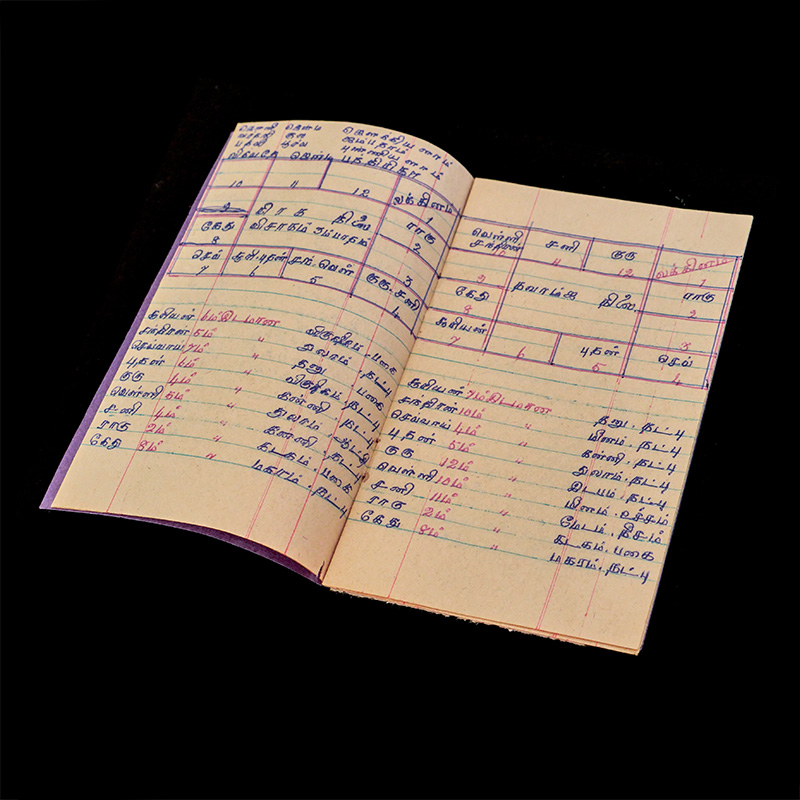 10 11 12 லக்கினம் 1
9 கிரக நிலை ராகு 2
கேது 8 விசாகம் 3ம்பாதம் 3
செவ் 7 சூரி.புதன் 6 சந்.வெள் 5 குரு.சனி 4
சூரியன் 6ம்இடமான விருச்சிகம். பகை
சந்திரன் 5ம் " துலாம். நட்பு
செவ்வாய் 7ம் " தனு. நட்பு
புதன் 6ம் " விருச்சிகம். நட்பு
குரு 4ம் " கன்னி. பகை
வெள்ளி 5ம் " துலாம். ஆட்சி
சனி 4ம் " கன்னி. நட்பு
ராகு 2ம் " கடகம். பகை
கேது 8ம் " மகரம். நட்பு
வெள்ளி சந்திரன் 10 சனி 11 குரு 12 லக்கினம் 1
9 நவாம்ச நிலை ராகு 2
கேது 8 3
சூரியன் 7 6 புதன் 5 செவ் 4
சூரியன் 7ம்இடமான தனு. நட்பு
சந்திரன் 10ம் " மீனம். நட்பு
செவ்வாய் 4ம் " கன்னி. நட்பு
புதன் 5ம் " துலாம். நட்பு
குரு 12ம் " இடபம். நட்பு
வெள்ளி 10ம் " மீனம். உச்சம்
சனி 11ம் " மேடம். நீசம்
ராகு 2ம் " கடகம். பகை
கேது 8ம் " மகரம். நட்பு